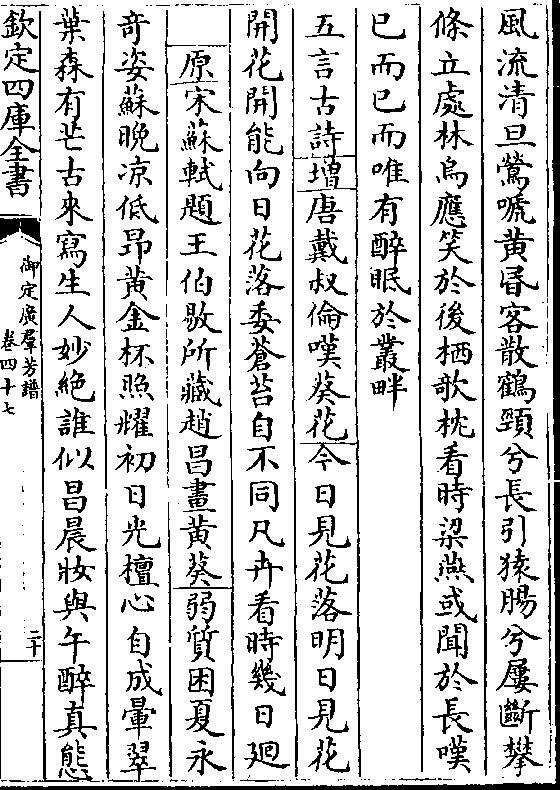 風流清旦鶯嗁黄昬客散鶴頸兮長引猿腸兮屢斷攀
條立處林烏應笑於後栖歌枕看時梁燕或聞於長嘆
已而已而唯有醉眠於叢畔
五言古詩增唐戴叔倫嘆葵花今日見花落明日見花
開花開能向日花落委蒼苔自不同凡卉看時幾日廻
原宋蘇軾題王伯敭所藏趙昌畫黄葵弱質困夏永
奇姿蘇晚凉低昂黄金杯照耀初日光檀心自成暈翠
葉森有芒古來寫生人妙絶誰似昌晨妝與午醉真態
欽定四庫全書
御定廣羣芳譜
卷四十七
二十